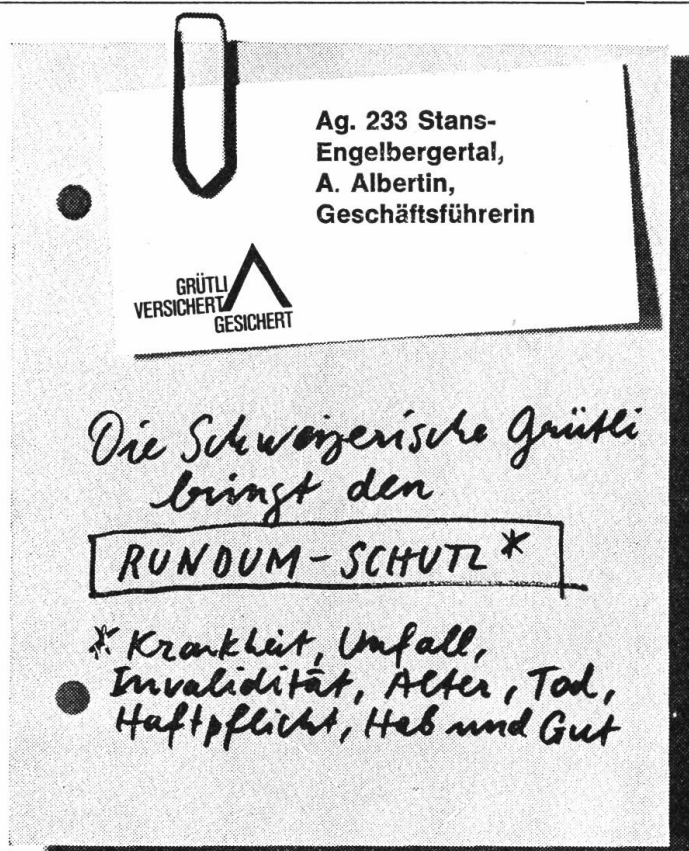 Ag. 233 Stans-
Engelbergertal,
A. Albertin,
Geschäftsführerin
GRÜTLI
VERSICHERT
GESICHERT
Die Schweizerische Grütli
bringt den
RUNDUM-SCHUTZ*
* Krankheit, Unfall,
Invalidität, Alter, Tod,
Haftpflicht, Hab und Gut